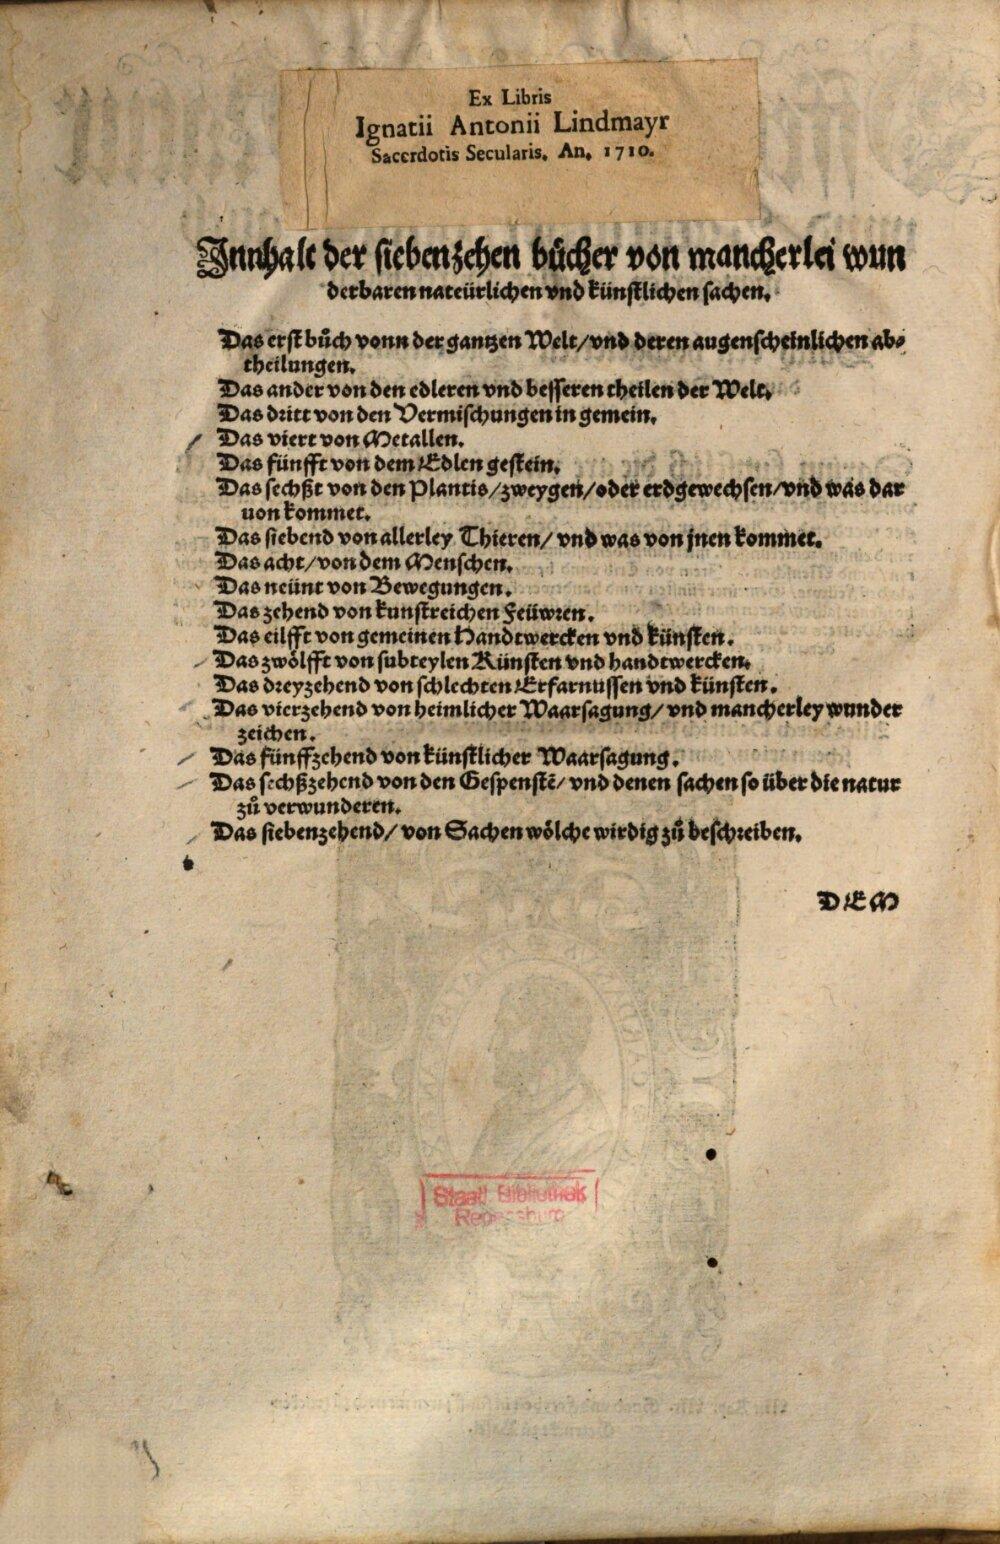 Ex Libris
Ignatii Antonii Lindmayr
Sacerdotis Secularis. An. 1710.
Innhalt der siebenzehen bücher von mancherlei wun
derbaren nateürlichen vnd künstlichen sachen.
Das erst bůch vonn der gantzen Welt/vnd deren augenscheinlichen ab⸗
theilungen.
Das ander von den edleren vnd besseren theilen der Welt.
Das dritt von den Vermischungen in gemein.
Das viert von Metallen.
Das fünfft von dem Edlen gestein.
Das sechßt von den Plantis/zweygen/oder erdgewechsen/vnd was dar
uon kommet.
Das siebend von allerley Thieren/ vnd was von jnen kommet.
Das acht/von dem Menschen.
Das neünt von Bewegungen.
Das zehend von kunstreichen Feüwren.
Das eilfft von gemeinen Handtwercken vnd künsten.
Das zwölfft von subteylen Künsten vnd handtwercken.
Das dreyzehend von schlechten Erfarnussen vnd künsten.
Das vierzehend von heimlicher Waarsagung/ vnd mancherley wunder
zeichen.
Das fünffzehend von künstlicher Waarsagung.
Das sechßzehend von den Gespenstē/ vnd denen sachen so über die natur
zů verwunderen.
Das siebenzehend/ von Sachen wölche wirdig zů beschreiben.
DEM
Staatl. Bibliothek
Regensburg